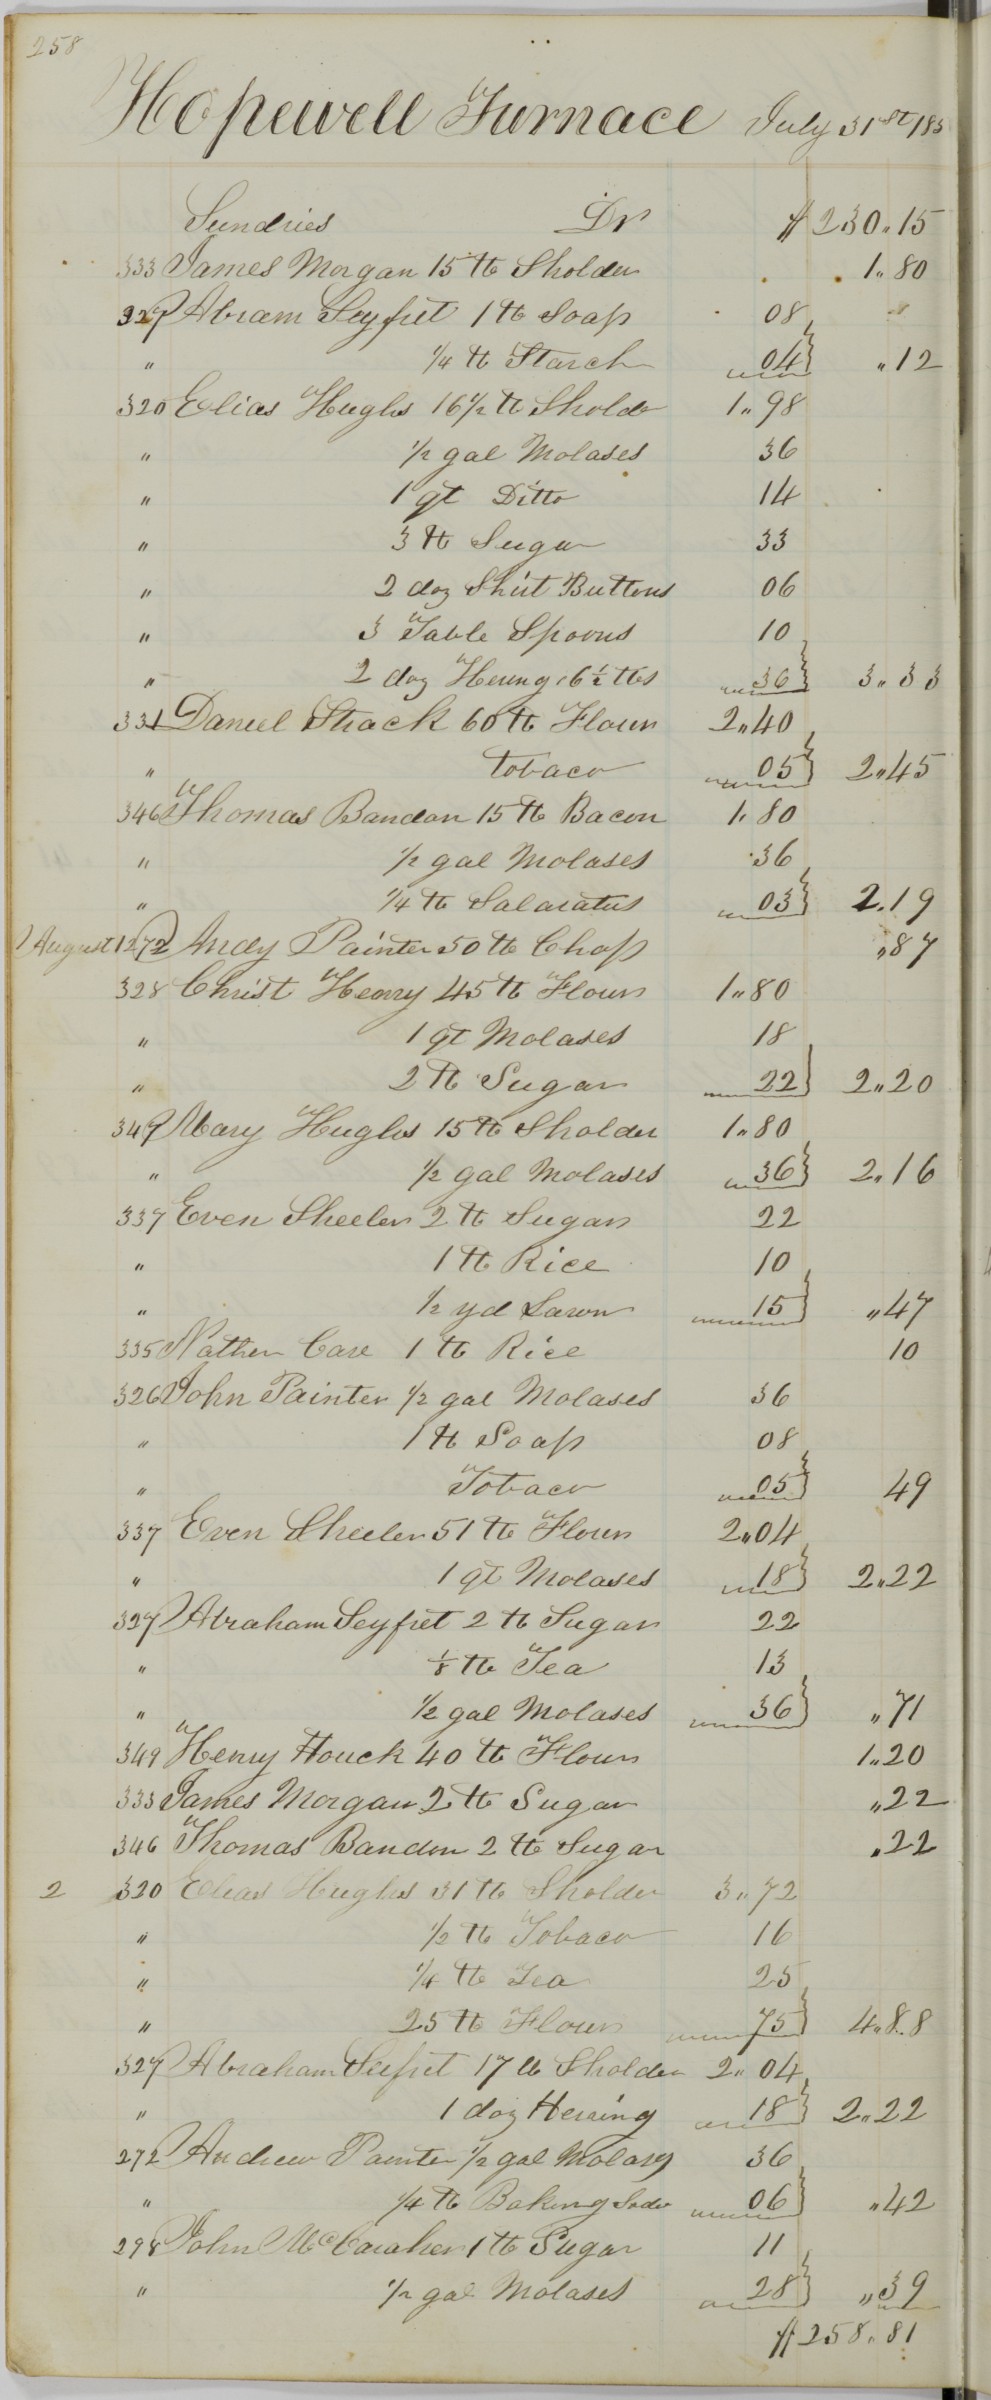 258
Hopewell Furnace July 31st 185
Sundries Dr $ 230"15
333 James Morgan 15 lb Sholder 1"80
327 Abram Seyfret 1 lb Soap 08
" 1/4 lb Starch 04 "12
320 Elias Hughs 16 1/2 lb Sholdr 1"98
" 1/2 gal Molases 36
" 1 qt Ditto 14
" 3 lb Sugar 33
" 2 doz Shirt Buttons 06
" 3 Table Spoons 10
" 2 doz Herring 6 1/2 lbs 36 3"33
331 Daniel Strack 60 lb Flour 2"40
" tobaco 05 2"45
346 Thomas Bandon 15 lb Bacon 1"80
" 1/2 gal Molases 36
" 1/4 lb Salaratus 03 2.19
August 1 272 Andy Painter 50 lb Chop "87
328 Christ Henry 45 lb Flour 1"80
" 1 qt Molases 18
" 2 lb Sugar 22 2"20
349 Mary Hughs 15 lb Sholder 1"80
" 1/2 gal Molases 36 2"16
337 Even Sheeler 2 lb Sugar 22
" 1 lb Rice 10
" 1/2 yd Lawn 15 "47
335 Nathen Care 1 lb Rice 10
326 John Painter 1/2 gal Molases 36
" 1 lb Soap 08
" Tobaco 05 49
337 Even Sheeler 51 lb Flour 2"04
" 1 qt Molases 18 2"22
327 Abraham Seyfret 2 lb Sugar 22
" 1/8 lb Tea 13
" 1/2 gal Molases 36 "71
349 Henry Houck 40 lb Flour 1"20
333 James Morgan 2 lb Sugar "22
346 Thomas Bandon 2 lb Sugar "22
2 320 Elias Hughs 31 lb Sholder 3"72
" 1/2 lb Tobaco 16
" 1/4 lb Tea 25
" 25 lb Flour 75 4"88
327 Abraham Seifret 17 lb Sholder 2"04
" 1 doz Herring 18 2"22
272 Andrew Painter 1/2 gal Molases 36
" 1/4 lb Baking Soder 06 "42
298 John McCaraher 1 lb Sugar 11
" 1/2 gal Molases 28 "39
$ 258"81